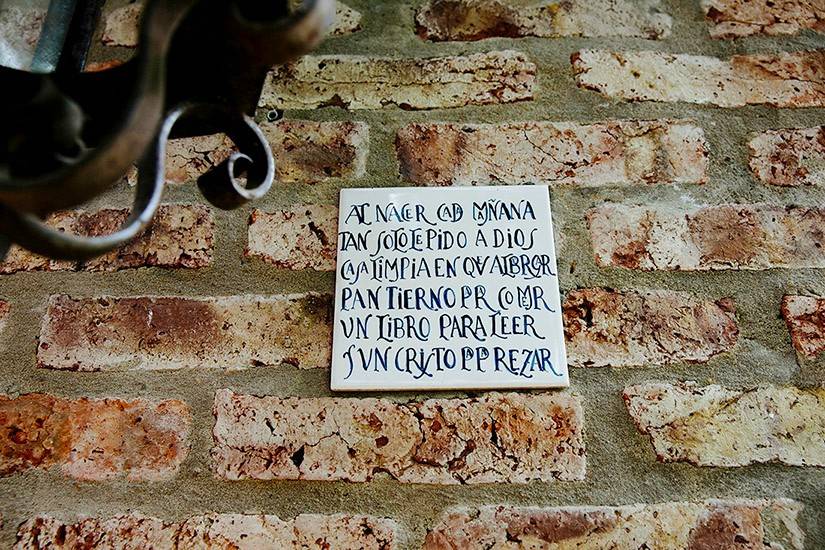 AL NACER CADA MAÑANA
TAN SOLO LE PIDO A DIOS
CASA LIMPIA EN QUE ALBERGAR
PAN TIERNO PARA COMER
UN LIBRO PARA LEER
Y UN CRISTO PARA REZAR